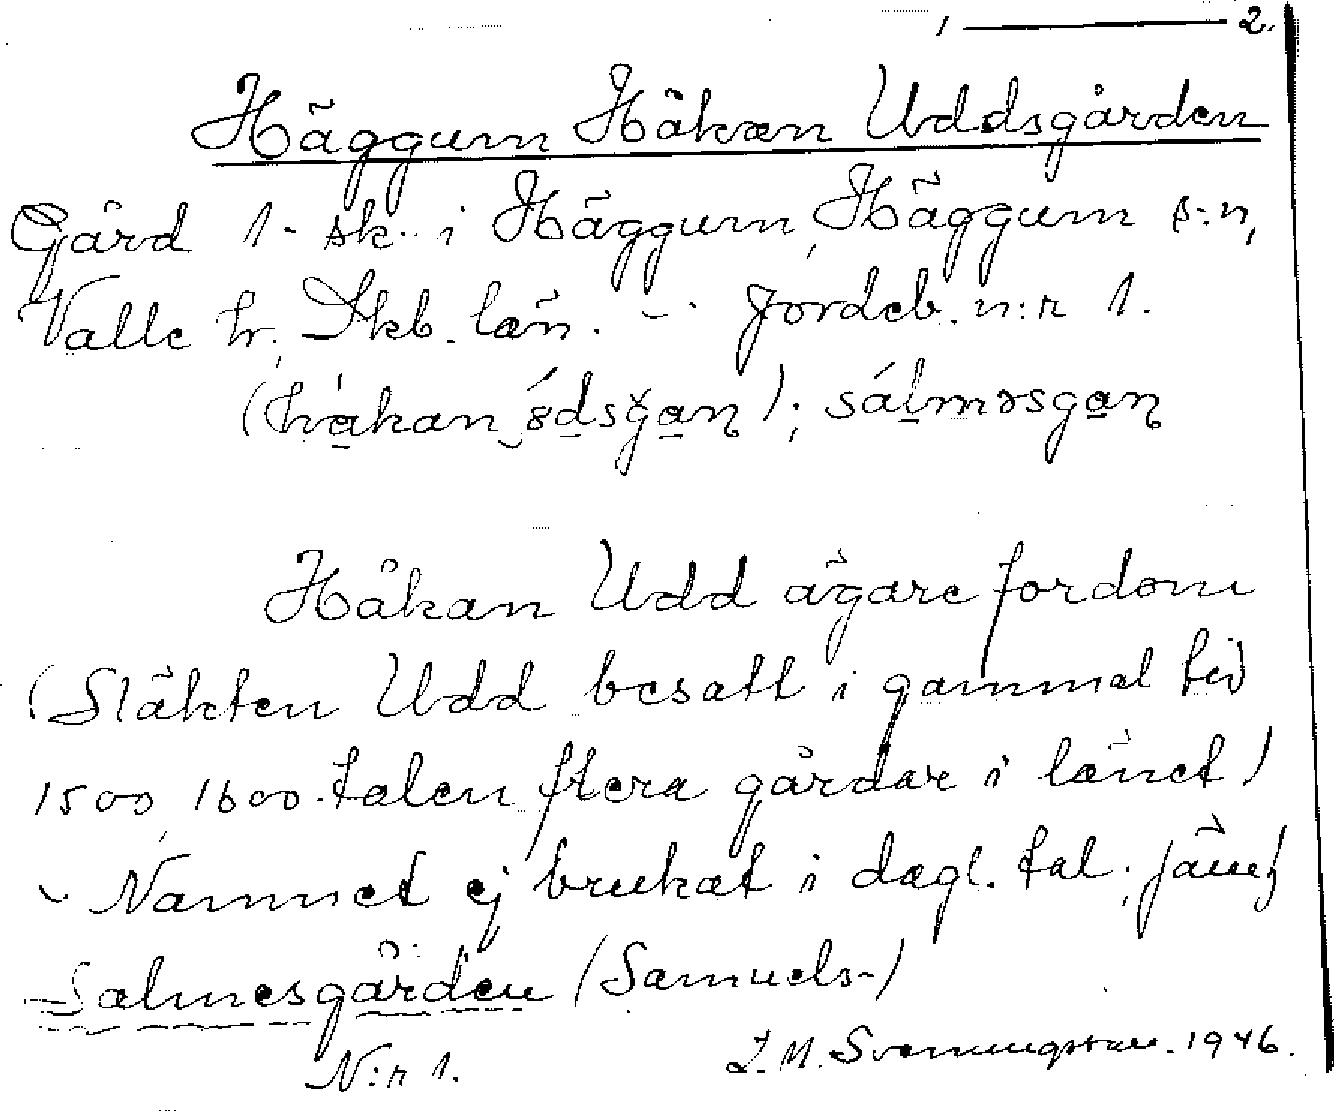 1 — 2.
Häggum Håkan Uddsgården
Gård 1. sk. i Häggum, Häggum s:n,
Valle hr, Skb. län. - Jordeb. n:r 1.
(håkan ); sálməsgaɳ
Håkan Udd ägare fordom
(Släkten Udd besatt i gammal tid
1500, 1600-talen flera gårdar i länet)
- Namnet ej brukat i dagl. tal; jämf
Salmesgården (Samuels-)
N:r 1.
Svenningsson. 1946.